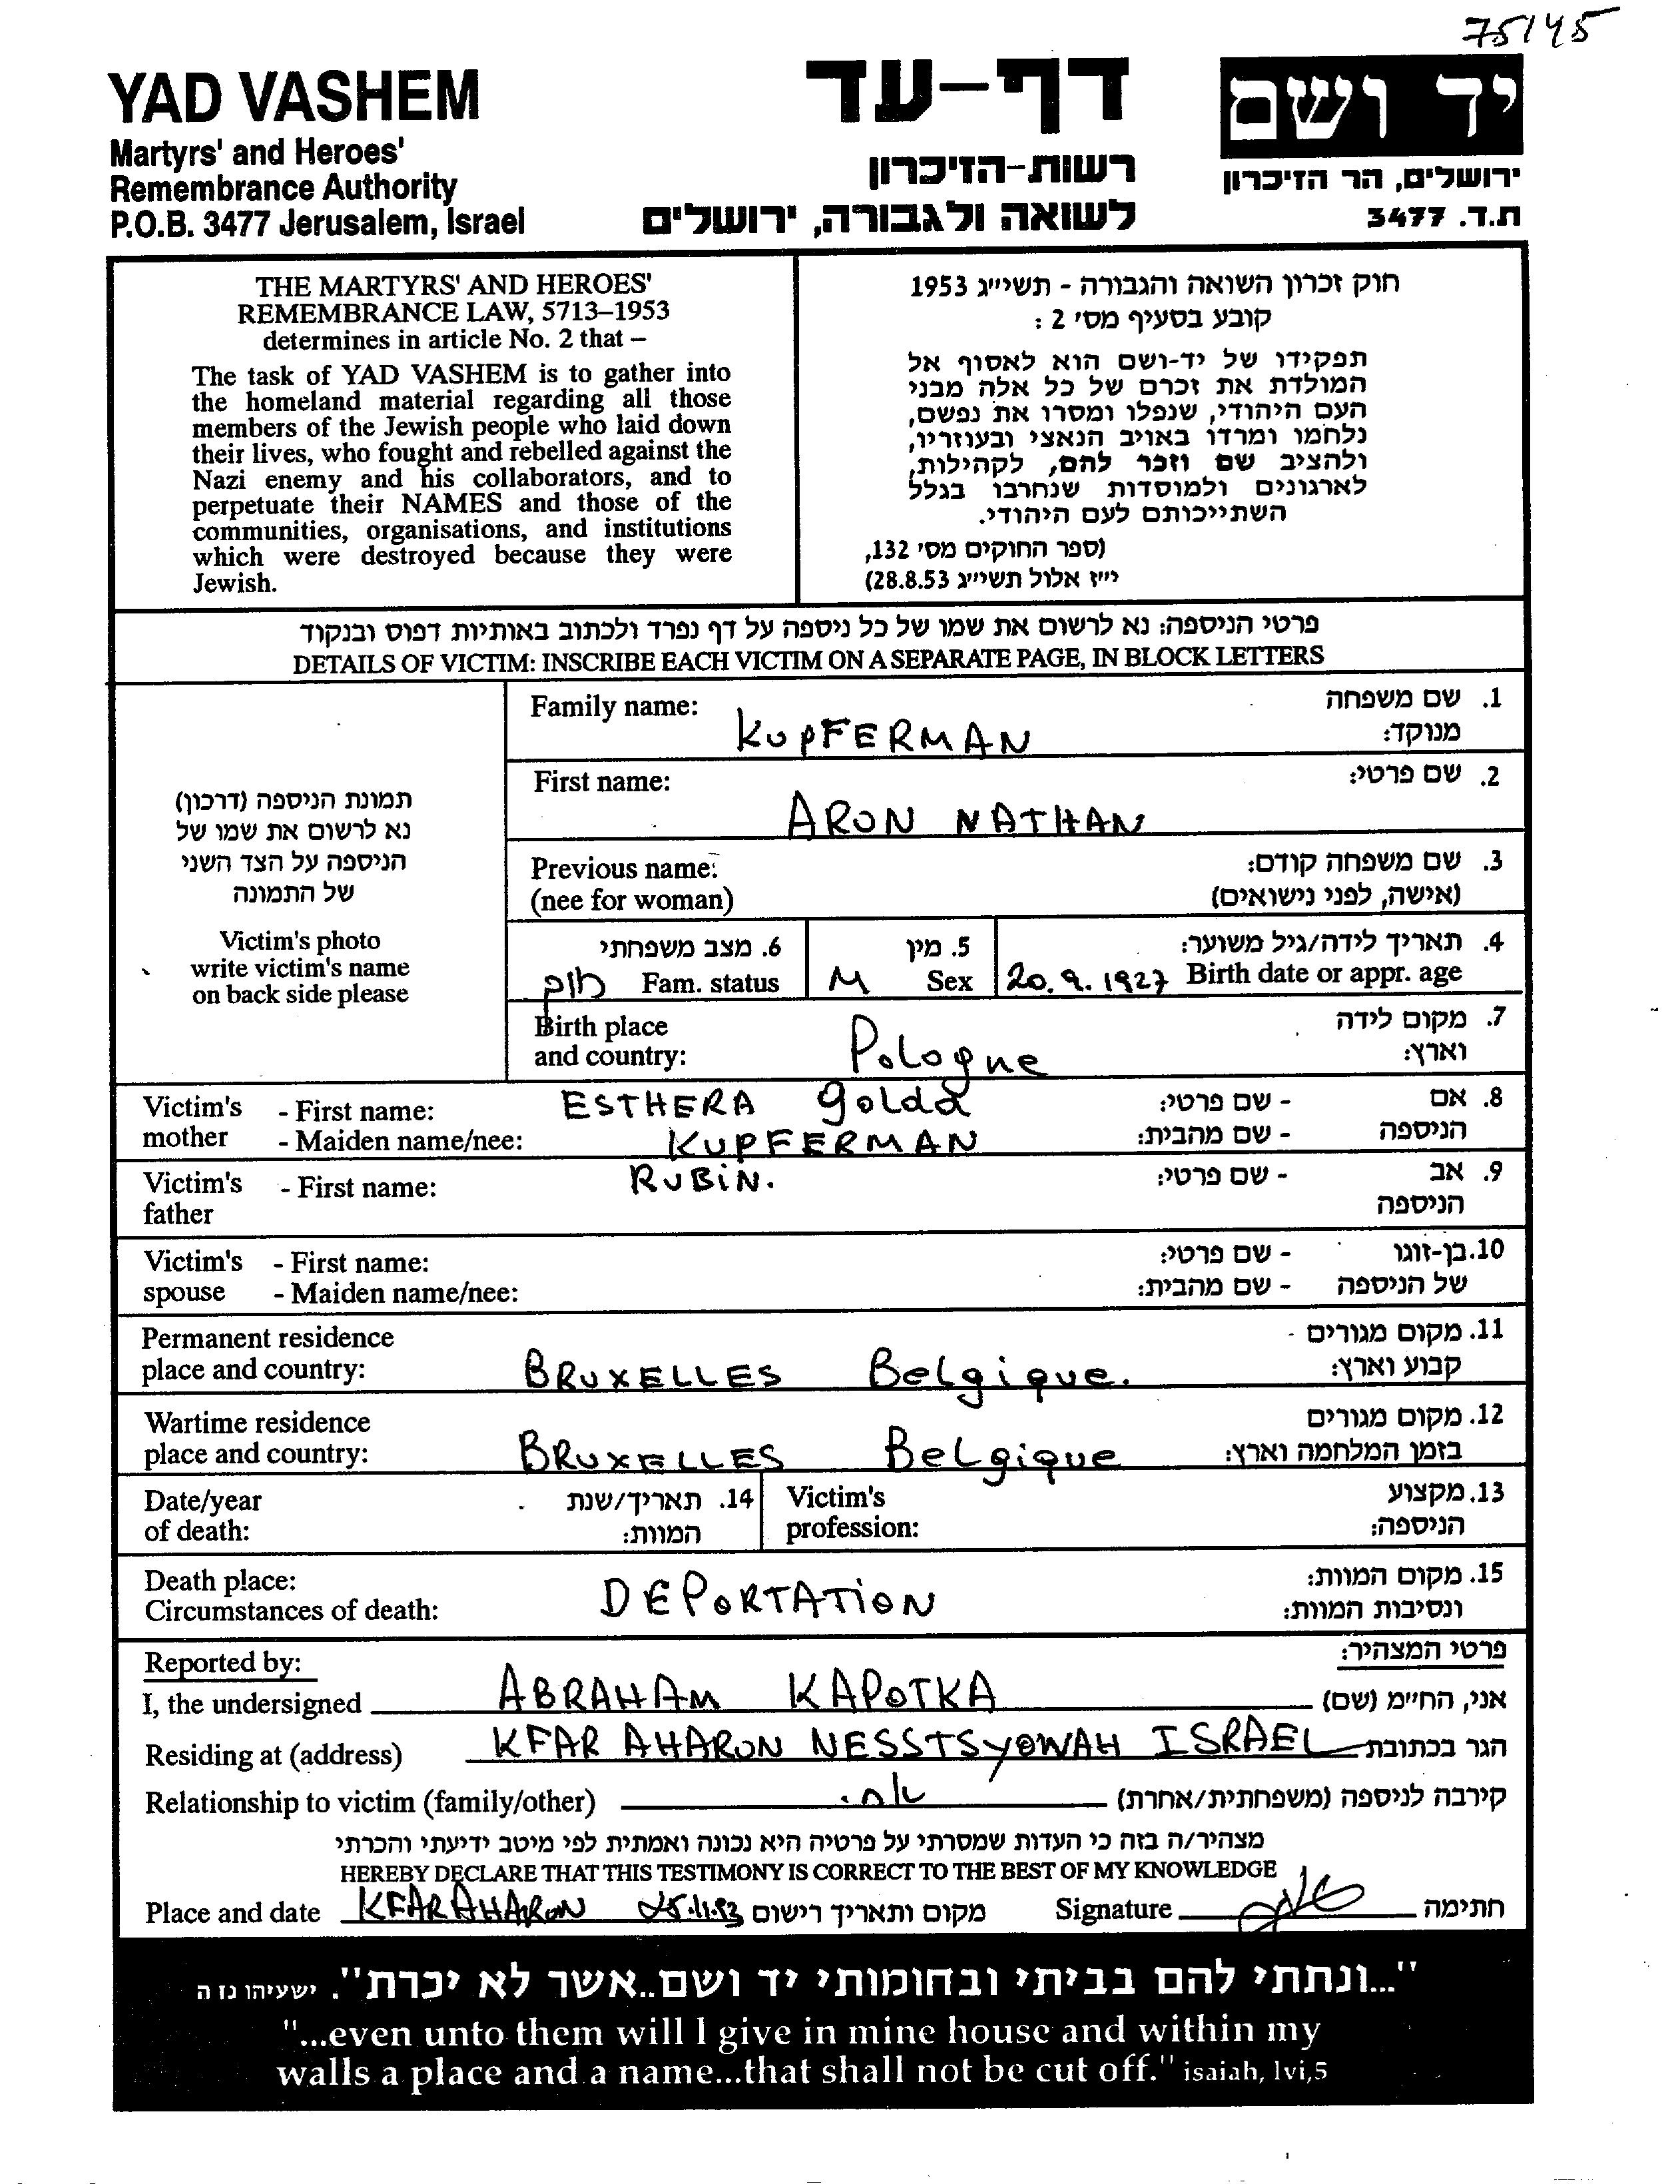 75145
YAD VASHEM
Martyrs' and Heroes'
Remembrance Authority
P.O.B. 3477 Jerusalem, Israel
דף-עד
רשות-הזיכרון
לשואה ולגבורה, ירושלים
יד ושם
ירושלים, הר הזיכרון
ת.ד. 3477
THE MARTYRS' AND HEROES'
REMEMBRANCE LAW, 5713–1953
determines in article No. 2 that –
The task of YAD VASHEM is to gather into
the homeland material regarding all those
members of the Jewish people who laid down
their lives, who fought and rebelled against the
Nazi enemy and his collaborators, and to
perpetuate their NAMES and those of the
communities, organisations, and institutions
which were destroyed because they were
Jewish.
חוק זכרון השואה והגבורה - תשי״ג 1953
קובע בסעיף מס' 2 :
תפקידו של יד-ושם הוא לאסוף אל
המולדת את זכרם של כל אלה מבני
העם היהודי, שנפלו ומסרו את נפשם,
נלחמו ומרדו באויב הנאצי ובעוזריו,
ולהציב שם וזכר להם, לקהילות,
לארגונים ולמוסדות שנחרבו בגלל
השתייכותם לעם היהודי.
(ספר החוקים מס' 132,
י״ז אלול תשי״ג 28.8.53)
פרטי הניספה: נא לרשום את שמו של כל ניספה על דף נפרד ולכתוב באותיות דפוס ובנקוד
DETAILS OF VICTIM: INSCRIBE EACH VICTIM ON A SEPARATE PAGE, IN BLOCK LETTERS
תמונת הניספה (דרכון)
נא לרשום את שמו של
הניספה על הצד השני
של התמונה
Victim's photo
write victim's name
on back side please
Family name: KUPFERMAN 1. שם משפחה
מנוקד:
First name: 2. שם פרטי:
ARON NATHAN
Previous name: 3. שם משפחה קודם:
(nee for woman) (אישה, לפני נישואים)
6. מצב משפחתי 5. מין 4. תאריך לידה/גיל משוער:
רווק Fam. status M Sex 20.9.1927 Birth date or appr. age
Birth place 7. מקום לידה
and country: Pologne וארץ:
Victim's - First name: ESTHERA golda - שם פרטי: 8. אם
mother - Maiden name/nee: KUPFERMAN - שם מהבית: הניספה
Victim's - First name: RUBIN. - שם פרטי: 9. אב
father הניספה
Victim's - First name: - שם פרטי: 10. בן-זוגו
spouse - Maiden name/nee: - שם מהבית: של הניספה
Permanent residence 11. מקום מגורים
place and country: BRUXELLES Belgique. קבוע וארץ:
Wartime residence 12. מקום מגורים
place and country: BRUXELLES Belgique בזמן המלחמה וארץ:
Date/year 14. תאריך/שנת Victim's 13. מקצוע
of death: המוות: profession: הניספה:
Death place: 15. מקום המוות:
Circumstances of death: DEPORTATION ונסיבות המוות:
Reported by: פרטי המצהיר:
I, the undersigned ABRAHAM KAPOTKA אני, החי״מ (שם)
Residing at (address) KFAR AHARON NESSTSYONAH ISRAEL הגר בכתובת
Relationship to victim (family/other) אח. קירבה לניספה (משפחתית/אחרת)
מצהיר/ה בזה כי העדות שמסרתי על פרטיה היא נכונה ואמתית לפי מיטב ידיעתי והכרתי
HEREBY DECLARE THAT THIS TESTIMONY IS CORRECT TO THE BEST OF MY KNOWLEDGE
Place and date KFAR AHARON 25.11.93 מקום ותאריך רישום Signature חתימה
"...ונתתי להם בביתי ובחומותי יד ושם..אשר לא יכרת". ישעיהו נז ה
"...even unto them will I give in mine house and within my
walls a place and a name...that shall not be cut off." isaiah, lvi,5